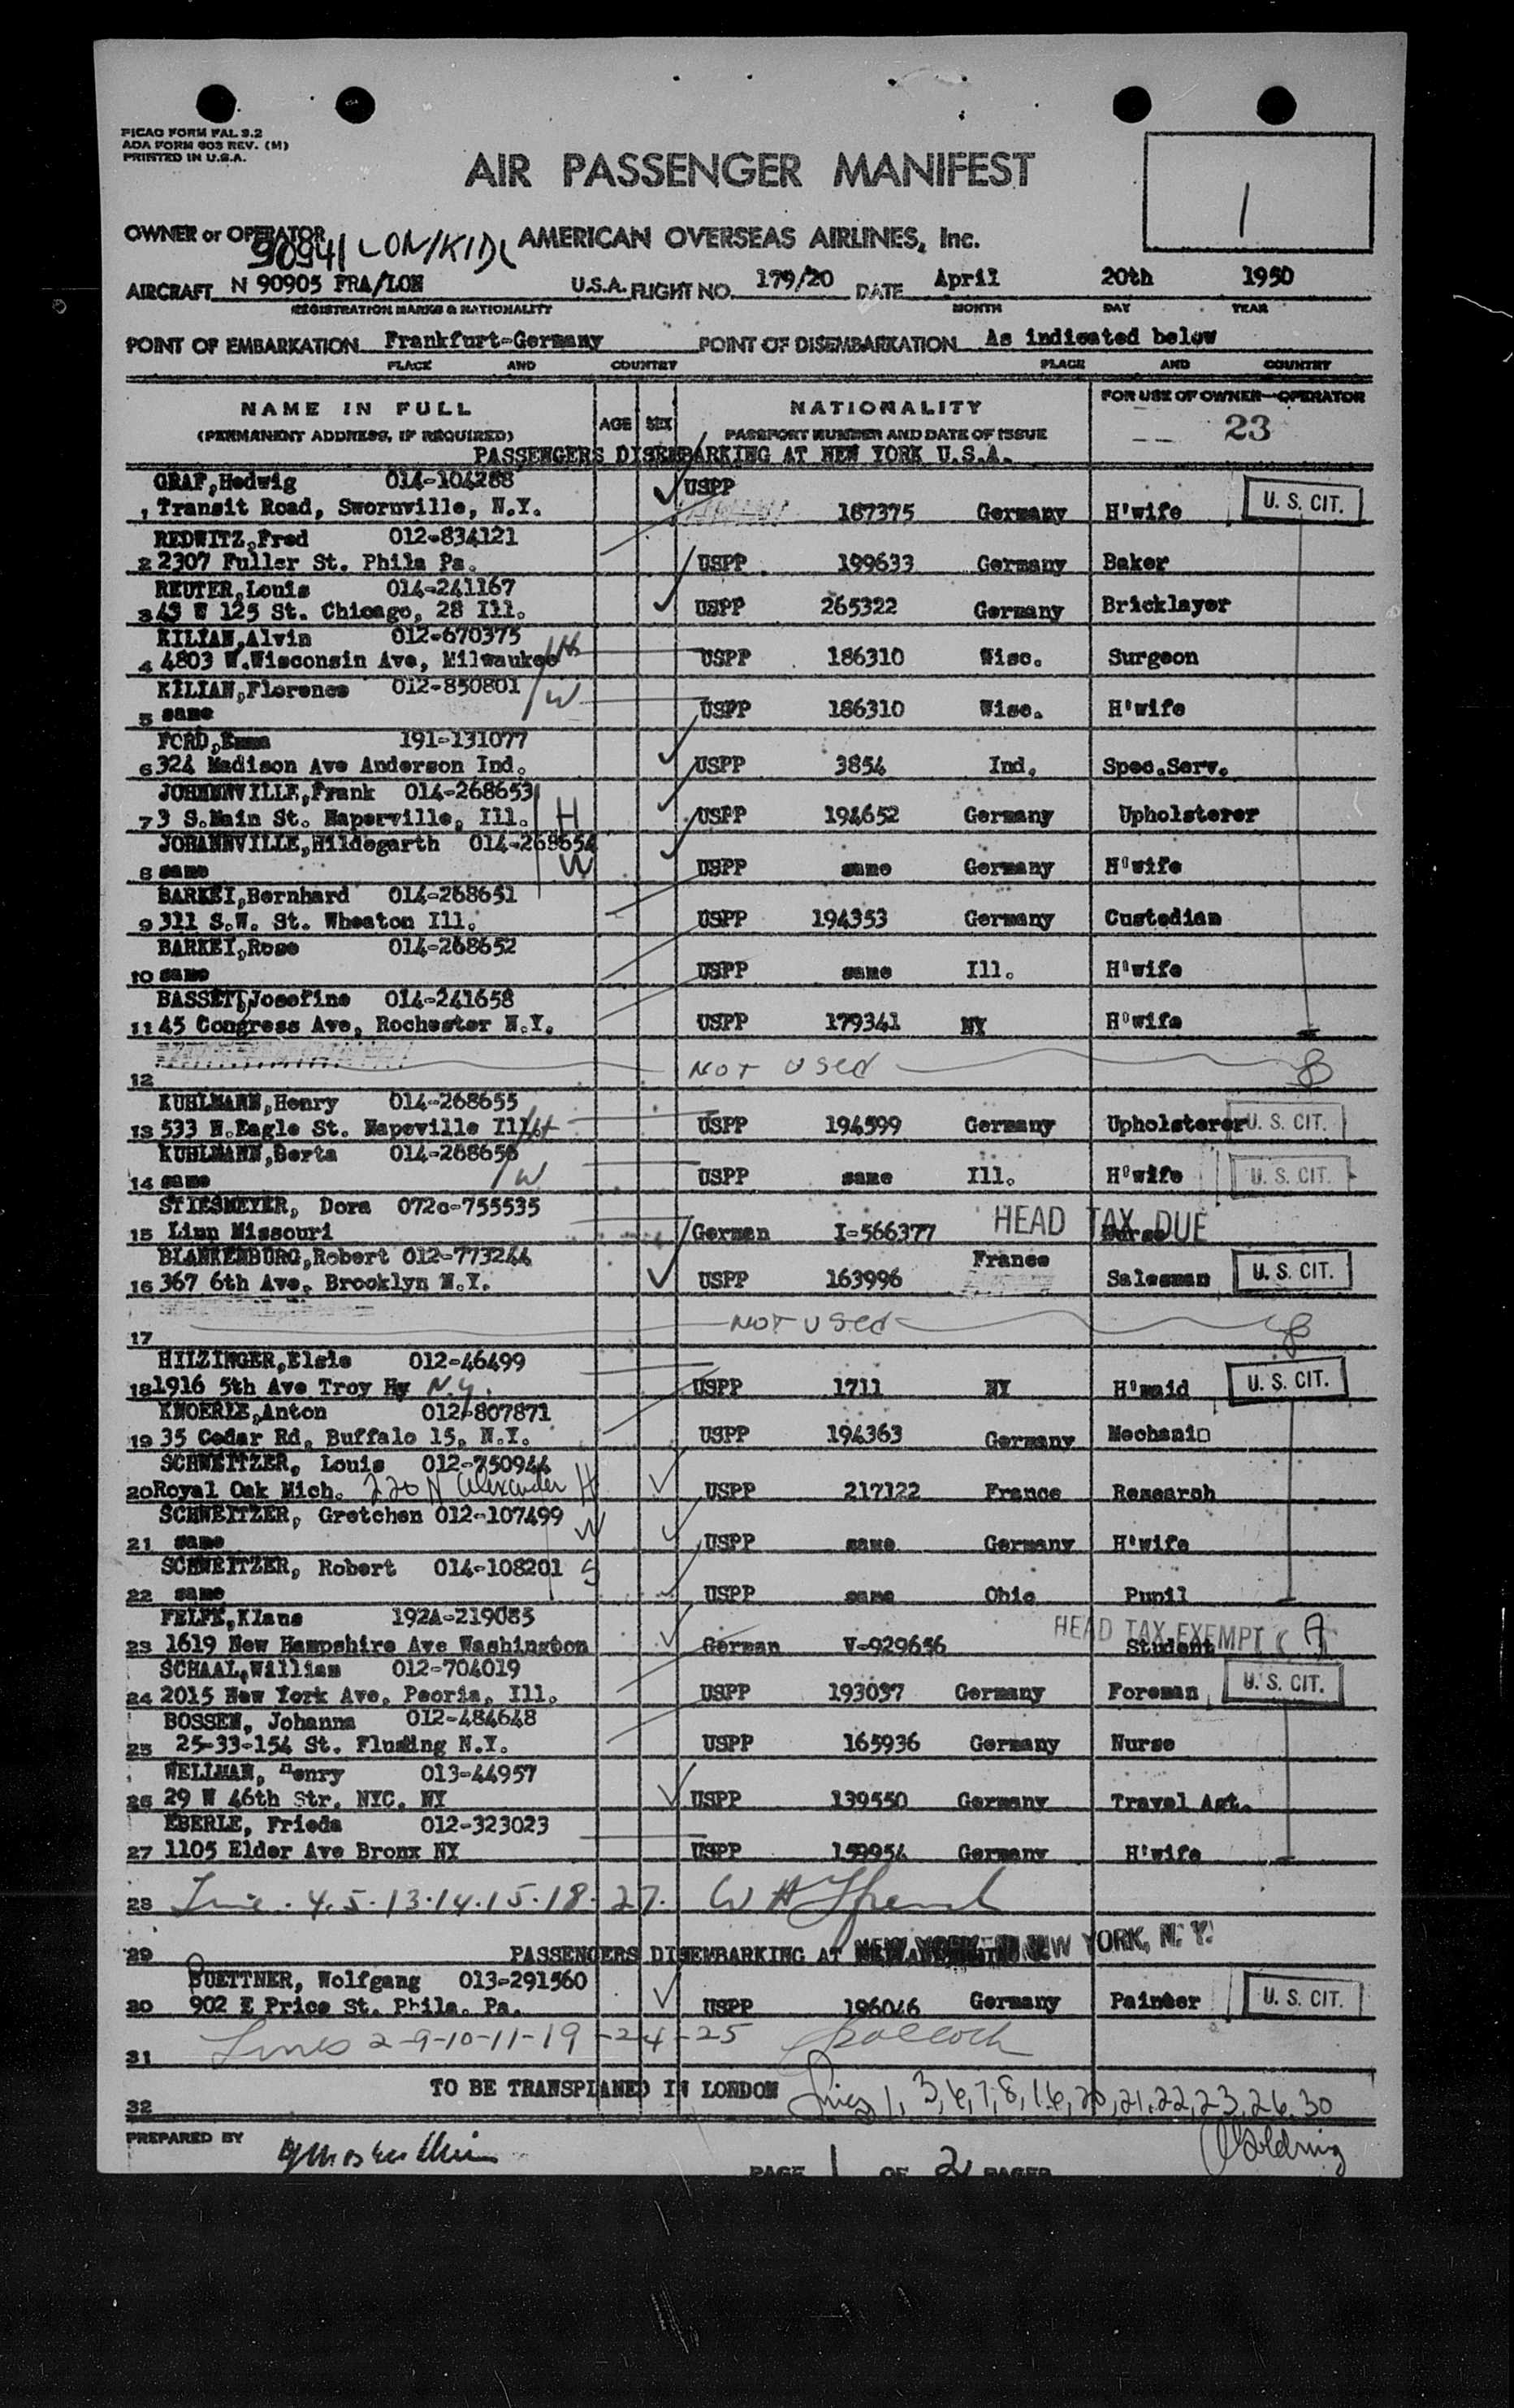 PICAO FORM FAL 3.2
AOA FORM 603 REV. (M)
PRINTED IN U.S.A.
AIR PASSENGER MANIFEST
1
OWNER or OPERATOR AMERICAN OVERSEAS AIRLINES, Inc.
90941 LON/KIDL
AIRCRAFT N 90905 FRA/LON U.S.A. FLIGHT NO. 179/20 DATE April 20th 1950
REGISTRATION MARKS & NATIONALITY MONTH DAY YEAR
POINT OF EMBARKATION Frankfurt-Germany POINT OF DISEMBARKATION As indicated below
PLACE AND COUNTRY PLACE AND COUNTRY
NAME IN FULL AGE SEX NATIONALITY FOR USE OF OWNER-OPERATOR
(PERMANENT ADDRESS, IF REQUIRED) PASSPORT NUMBER AND DATE OF ISSUE -- 23
PASSENGERS DISEMBARKING AT NEW YORK U.S.A.
GRAF,Hedwig 014-104288 USPP
1 Transit Road, Swornville, N.Y. 187375 Germany H'wife U. S. CIT.
REDWITZ,Fred 012-834121
2 2307 Fuller St. Phila Pa. USPP 199633 Germany Baker
REUTER,Louis 014-241167
3 43 W 125 St. Chicago, 28 Ill. USPP 265322 Germany Bricklayer
KILIAN,Alvin 012-670375
4 4803 W.Wisconsin Ave, Milwaukee H USPP 186310 Wisc. Surgeon
KILIAN,Florence 012-850801 W
5 same USPP 186310 Wisc. H'wife
FORD,Emma 191-131077
6 324 Madison Ave Anderson Ind. USPP 3854 Ind. Spec.Serv.
JOHANNVILLE,Frank 014-268653
7 3 S.Main St. Naperville, Ill. H USPP 194652 Germany Upholsterer
JOHANNVILLE,Hildegarth 014-268654
8 same W USPP same Germany H'wife
BARKEI,Bernhard 014-268651
9 311 S.W. St. Wheaton Ill. USPP 194353 Germany Custodian
BARKEI,Rose 014-268652
10 same USPP same Ill. H'wife
BASSETT,Josefine 014-241658
11 45 Congress Ave, Rochester N.Y. USPP 179341 NY H'wife
12 NOT USED
KUHLMANN,Henry 014-268655
13 533 N.Eagle St. Napeville Ill H USPP 194599 Germany Upholsterer U. S. CIT.
KUHLMANN,Berta 014-268656
14 same W USPP same Ill. H'wife U. S. CIT.
STIESMEYER, Dora 072c-755535
15 Linn Missouri German I-566377 HEAD TAX DUE Nurse
BLANKENBURG,Robert 012-773244 France
16 367 6th Ave. Brooklyn N.Y. USPP 163996 Salesman U. S. CIT.
17 NOT USED
HILZINGER,Elsie 012-46499
18 1916 5th Ave Troy Ny N.Y. USPP 1711 NY H'maid U. S. CIT.
KNOERLE,Anton 012-807871
19 35 Cedar Rd, Buffalo 15, N.Y. USPP 194363 Germany Mechanic
SCHWEITZER, Louis 012-750944
20 Royal Oak Mich. 220 N Alexander H USPP 217122 France Research
SCHWEITZER, Gretchen 012-107499
21 same W USPP same Germany H'wife
SCHWEITZER, Robert 014-108201 S
22 same USPP same Ohio Pupil
FELFE,Klaus 192A-219085
23 1619 New Hampshire Ave Washington German V-929656 Student HEAD TAX EXEMPT ( A
SCHAAL,William 012-704019
24 2015 New York Ave, Peoria, Ill. USPP 193037 Germany Foreman U. S. CIT.
BOSSEN, Johanna 012-484648
25 25-33-154 St. Flushing N.Y. USPP 165936 Germany Nurse
WELLMAN, Henry 013-44957
26 29 W 46th Str. NYC. NY USPP 139550 Germany Travel Agt.
EBERLE, Frieda 012-323023
27 1105 Elder Ave Bronx NY USPP 159954 Germany H'wife
28 Line. 4.5.13.14.15.18.27.
29 PASSENGERS DISEMBARKING AT NEW YORK, N. Y.
BUETTNER, Wolfgang 013-291560
30 902 E Price St. Phila. Pa. USPP 196046 Germany Painter U. S. CIT.
31 Lines 2-9-10-11-19-24-25
32 TO BE TRANSPLANED IN LONDON Lines 1, 3,6,7,8,16,20,21,22,23,26,30
PREPARED BY Goldring
PAGE 1 OF 2 PAGES